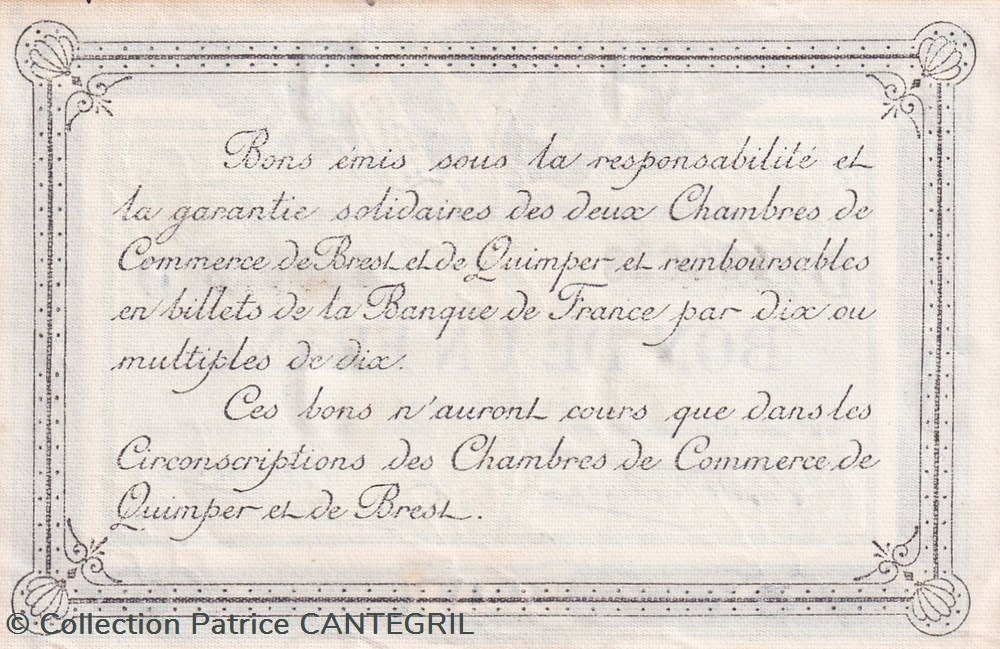 Bons émis sous la responsabilité et
la garantie solidaires des deux Chambres de
Commerce de Brest et de Quimper et remboursables
en billets de la Banque de France par dix ou
multiples de dix.
Ces bons n'auront cours que dans les
Circonscriptions des Chambres de Commerce de
Quimper et de Brest.
© Collection Patrice CANTEGRIL